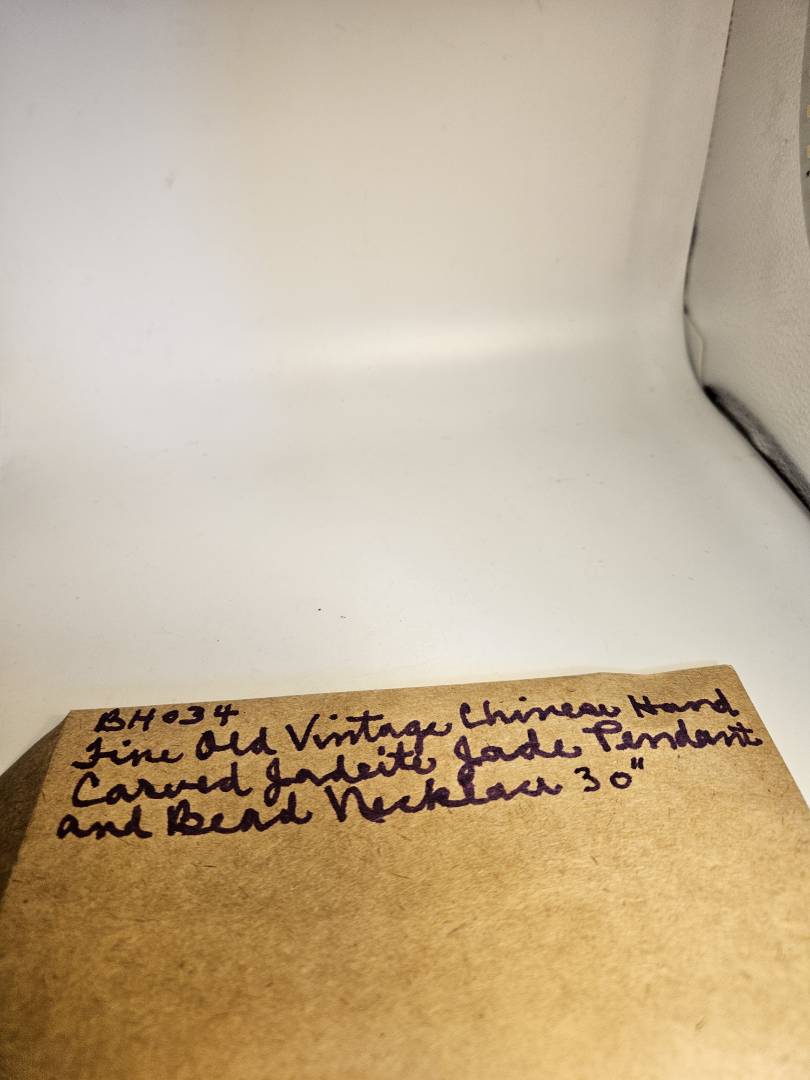 BH034
Fine Old Vintage Chinese Hand
Carved Jadeite Jade Pendant
and Bead Necklace 30"